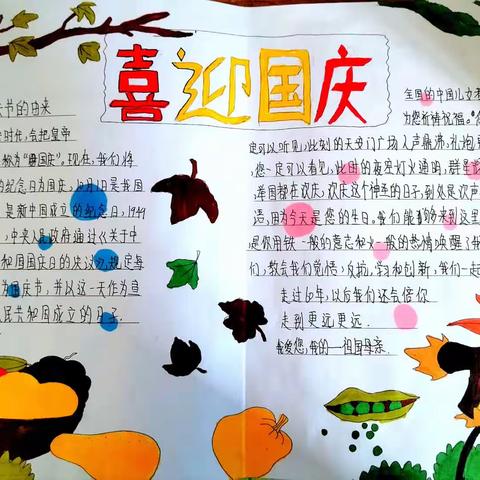 喜迎国庆
节的由来
时代,会把皇帝
称为"国庆",现在,我们将
的纪念日为国庆,10月1日是我国
是新中国成立的纪念日,1949
,中央人民政府通过《关于中
和国国庆日的决议》,规定每
为国庆节,并以这一天作为宣
人民共和国成立的日子
全国的中国儿女
为您祈祷祝福。
定可以听见,此刻的天安门广场人声鼎沸,礼炮
,您一定可以看见,此时的夜空灯火通明,群星
,举国都在欢庆,欢庆这个神圣的日子,到处是欢声
语,因为今天是您的生日。我们能够来到这里
是你用铁一般的意志和火一般的热情唤醒了我
们,教会我们觉悟,反抗,学习和创新,我们一起
走过60年,以后我们还会陪你
走到更远更远.
我爱您,我的——祖国母亲.